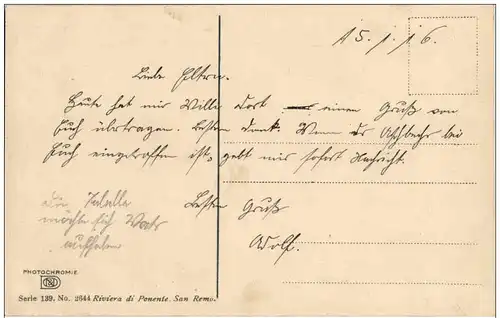 15.1.16.
Liebe Eltern.
Heute hat mir Willi dort einen Gruß von
Euch übertragen. Besten Dank. Wenn der bei
Euch eingetroffen ist, gebt mir sofort Nachricht.
Besten Gruß
Adolf.
die Tabelle
möchte sich Vater
aufheben
PHOTOCHROMIE
Serie 139. No. 2644 Riviera di Ponente. San Remo.